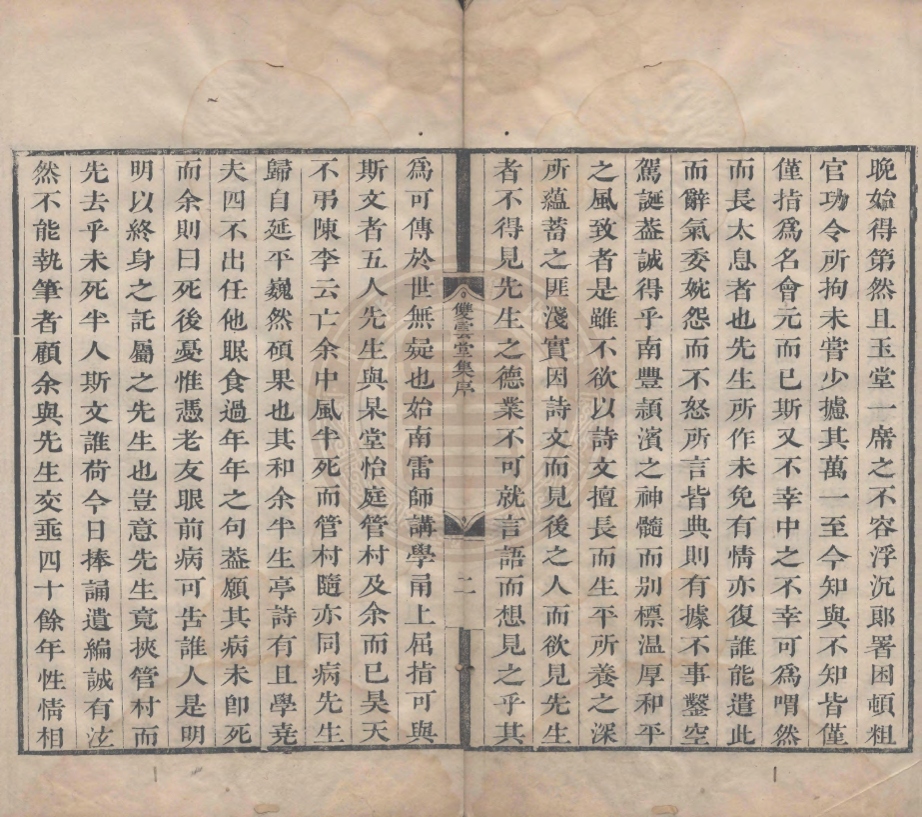 晚始得第然且玉堂一席之不容浮沉郎署困頓粗
官功令所拘未嘗少攄其萬一至今知與不知皆僅
僅指爲名會元而已斯又不幸中之不幸可爲喟然
而長太息者也先生所作未免有情亦復誰能遣此
而辭氣委婉怨而不怒所言皆典則有據不事鑿空
駕誕葢誠得乎南豐潁濱之神髓而别標温厚和平
之風致者是雖不欲以詩文擅長而生平所養之深
所蘊蓄之匪淺實因詩文而見後之人而欲見先生
者不得見先生之德業不可就言語而想見之乎其
雙雲堂集序
二
爲可傳於世無疑也始南雷師講學甬上屈指可與
斯文者五人先生與杲堂怡庭管村及余而已昊天
不弔陳李云亡余中風半死而管村隨亦同病先生
歸自延平巍然碩果也其和余半生亭詩有且學堯
夫四不出任他眠食過年年之句葢願其病未卽死
而余則曰死後憂惟憑老友眼前病可告誰人是明
明以終身之託屬之先生也豈意先生竟挾管村而
先去乎未死半人斯文誰荷今日捧誦遺編誠有泫
然不能執筆者顧余與先生交垂四十餘年性情相